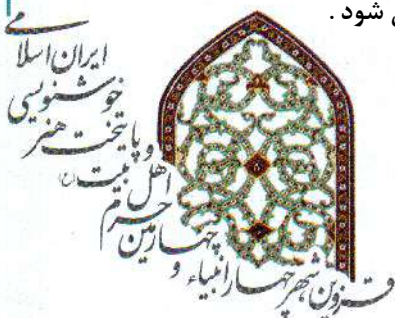 شود .
قزوین شهر چهار انبیاء و
چهارمین
حرم
اهل بیت (ع)
و پایتخت هنر
خوشنویسی
ایران اسلامی